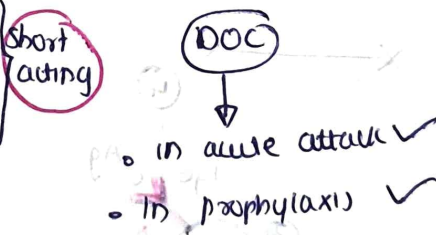 short
acting
DOC
• in acute attack ✓
• In prophylaxis ✓